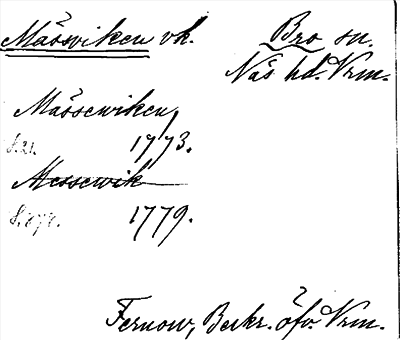 Mässviken vk.
Bro sn.
Näs hd. Vrm.
Mässewiken,
S.21. 1773.
Messewik
1779.
Fernow, Beskr. öfv. Vrm.